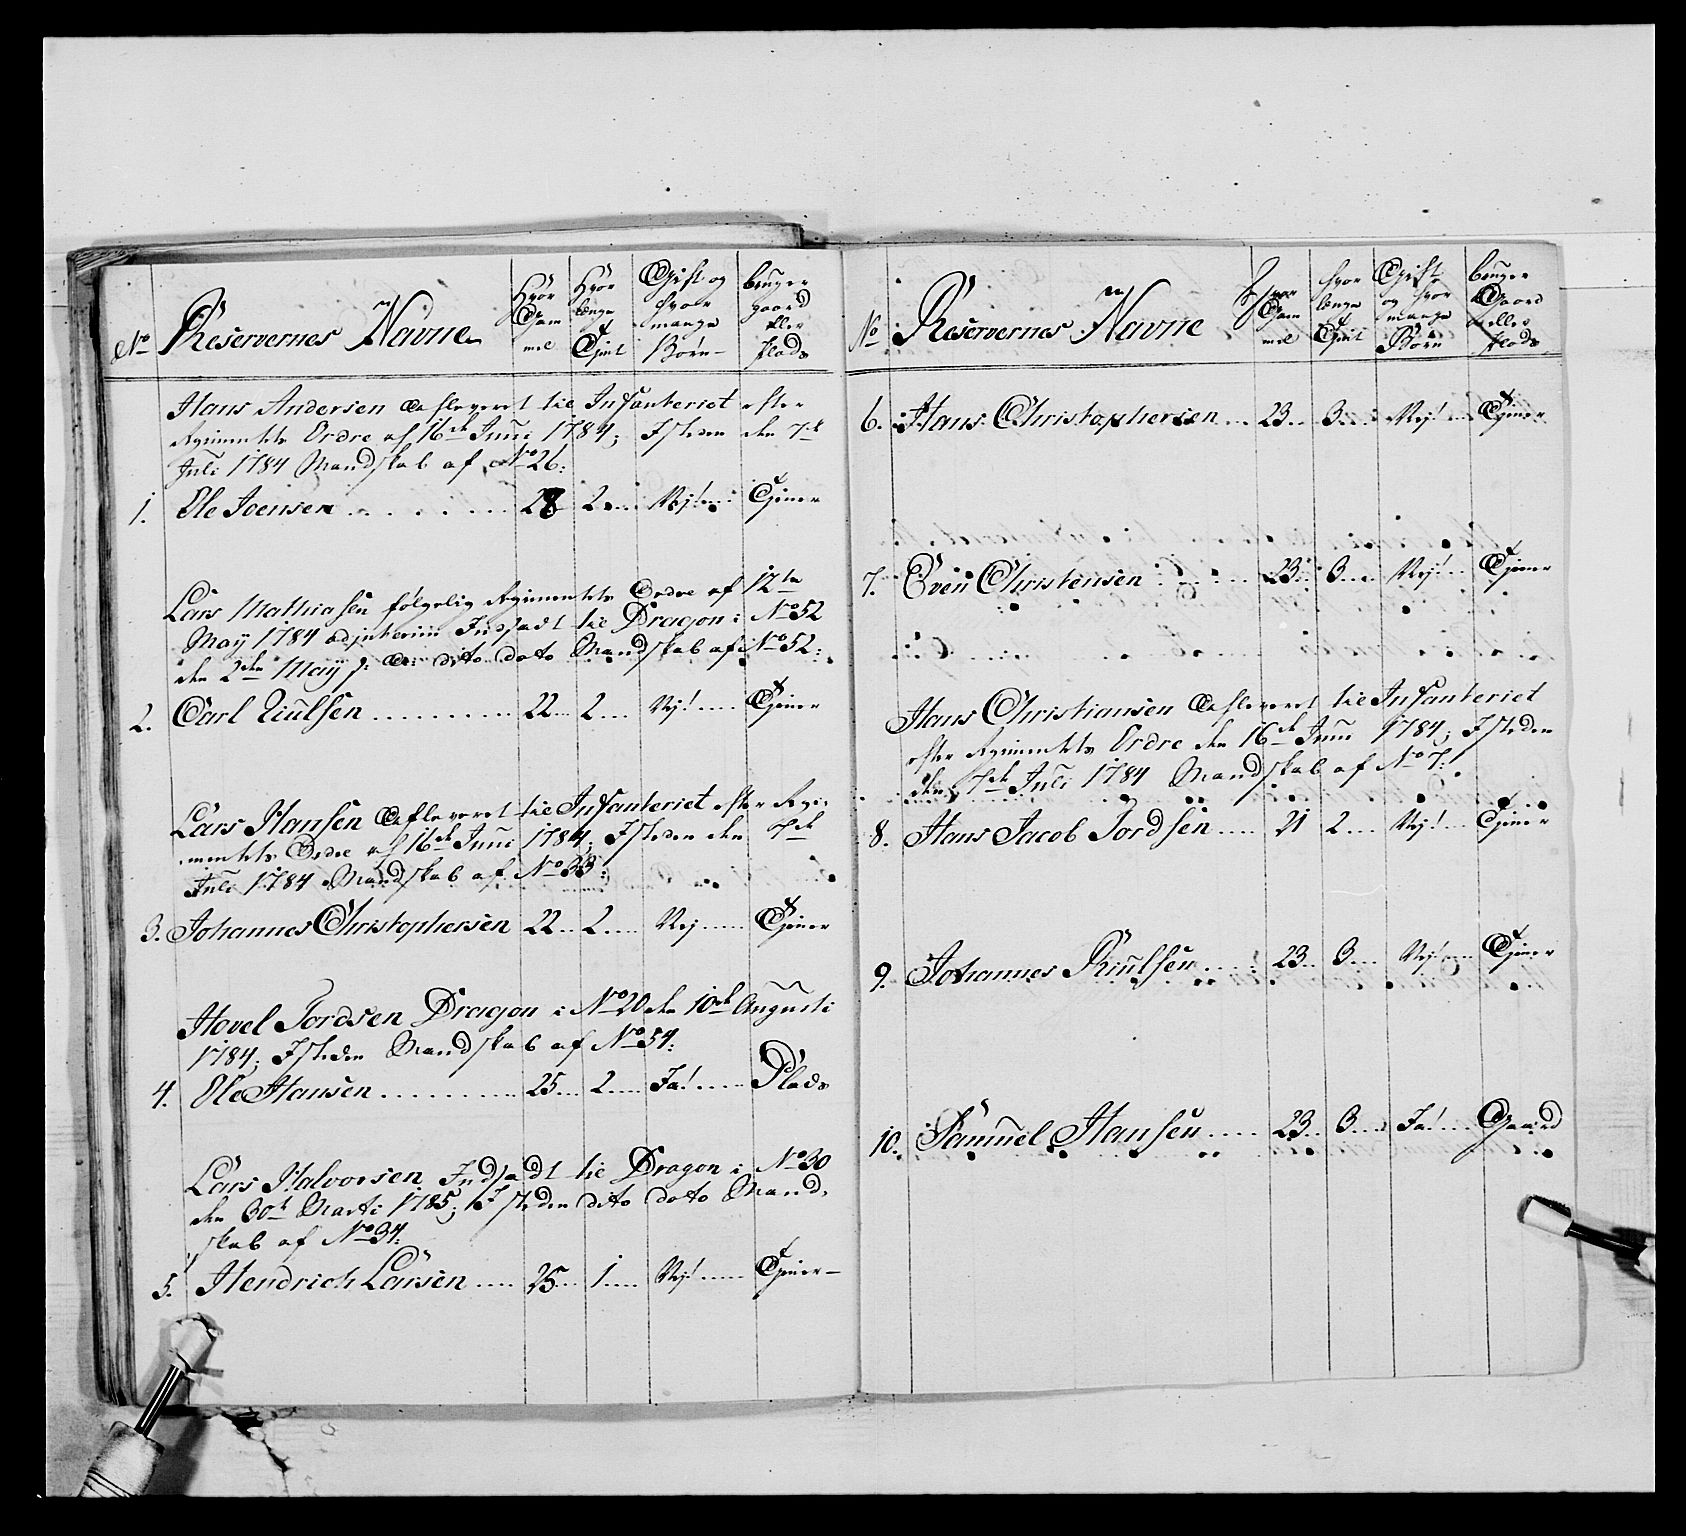 No Reservernes Navne Hvor Gam mel Hvor længe Tjent Gift og hvor mange Børn bruger gaard eller Plads
Hans Andersen Afleveret til Infanteriet efter
Regimentets Ordre af 16de Junii 1784; Isteden den 7de
Juli 1784 Mandskab af No 26:
1. Ole Joensen 28 2 Nej! Tjener
Lars Mathiasen følgelig Regimentets Ordre af 12te
Maÿ 1784 adjnterim Indsadt til Dragon i No 52
den 2den Maÿ dito dato Mandskab af No 52:
2. Carl Riulsen 22 2 Nej! Tjener
Lars Hansen Afleveret til Infanteriet efter Regi-
mentets Ordre af 16de Junii 1784; Isteden den 7de
Juli 1784 Mandskab af No 33:
3. Johannes Christophersen 22 2 Nej Tjener
Hovel Tordsen Dragon i No 20 den 10de Augusti
1784; Isteden Mandskab af No 54:
4. Ole Hansen 25 2 Ja! Plads
Lars Halvorsen Indsadt til Dragon i No 30
den 30te Marti 1785; Isteden dito dato Mand-
skab af No 34:
5. Hendrich Larsen 25 1 Nej! Tjener
No Reservernes Navne Hvor Gam mel hvor længe Tjent Gift og hvor mange Børn bruger Gaard eller Plads
6. Hans Christophersen 23 3 Nej! Tjener
7. Even Christensen 23 3 Nej! Tjener
Hans Christiansen Afleveret til Infanteriet
efter Regimentets Ordre den 16de Junii 1784; Isteden
den 7de Juli 1784 Mandskab af No 7:
8. Hans Jacob Tordsen 21 2 Nej! Tjener
9. Johannes Knutsen 23 3 Nej! Tjener
10. Samuel Hansen 23 3 Ja! Gaard